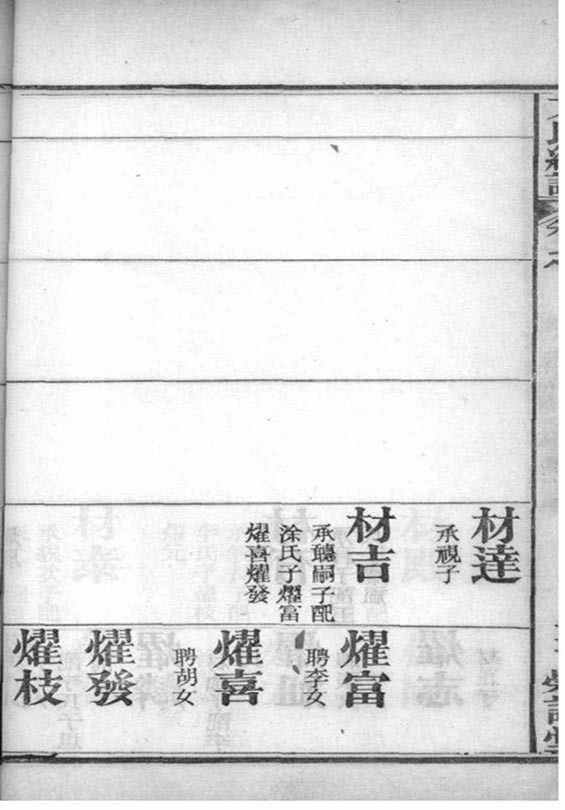 材達
承視子
材吉
承聽嗣子配
涂氏子燿富
燿喜燿發
燿富
聘李女
燿喜
聘胡女
燿發
燿枝